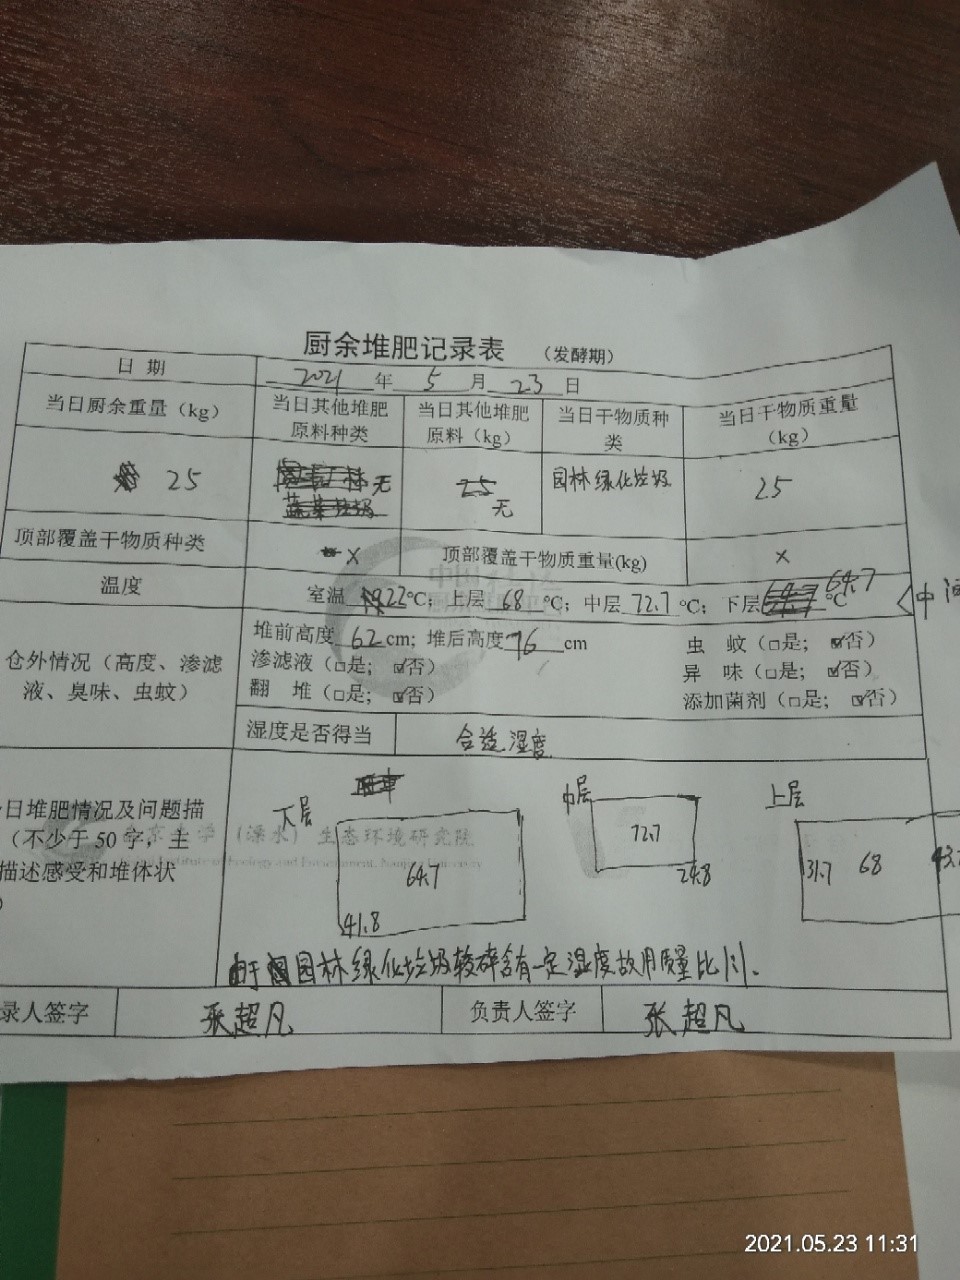 厨余堆肥记录表 （发酵期）
日 期 2021 年 5 月 23 日
当日厨余重量（kg） 当日其他堆肥原料种类 当日其他堆肥原料（kg） 当日干物质种类 当日干物质重量（kg）
25 无 无 园林绿化垃圾 25
顶部覆盖干物质种类 × 顶部覆盖干物质重量(kg) ×
温度 室温 22℃；上层 68 ℃；中层 72.7 ℃；下层 64.7 ℃ <中
仓外情况（高度、渗滤液、臭味、虫蚊）
堆前高度 62 cm; 堆后高度 76 cm 虫 蚊（□是； ☑否）
渗滤液（□是； ☑否） 异 味（□是； ☑否）
翻 堆（□是； ☑否） 添加菌剂（□是； ☑否）
湿度是否得当 合适湿度
日堆肥情况及问题描
（不少于50字，主
描述感受和堆体状
）
下层 中层 上层
64.7 41.8
72.7 24.8
31.7 68
（溧水）生态环境研究院
园林绿化垃圾较碎含有一定湿度故用质量比1:1.
录人签字 张超凡 负责人签字 张超凡
2021.05.23 11:31